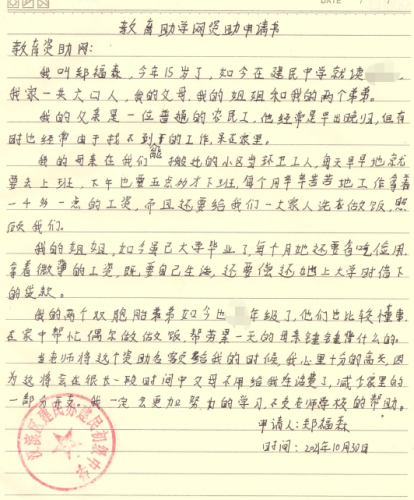 DATE
教育助学网资助申请书
教育资助网:
我叫郑福森,今年15岁了,如今在建民中学就读
我家一共六口人,我的父母,我的姐姐和我的两个弟弟。
我的父亲是一位普通的农民了,他经常是早出晚归,但有
时也经常由于找不到的工作,来在家里。
我的母亲在我们能搬此的小区当环卫工人,每天早早地就
要去上班,下午也要五点功才下班,每个月辛辛苦苦地工作拿着
一千多一点的工资,而且还要给我们一大家人洗衣做饭,照
顾我们。
我的姐姐,如今虽已大学毕业了,每个月她还要省吃俭用,
拿着微薄的工资,既要自己生活,还要偿还她上大学时借下
的贷款。
我的两个双胞胎弟弟如今也 年级了,他们也比较懂事,
在家中帮忙偶尔做做饭,帮劳累一天的母亲锤锤背什么的。
当老师将这个资助名额给我的时候,我心里十分的高兴,因
为这将会在很长一段时间中父母不用给我生活费了,减少家里的
一部分开支。我一定会更加努力的学习,不负老师学校的帮助。
申请人:郑福森
时间:2021年10月30日
区建民办建民初级中学